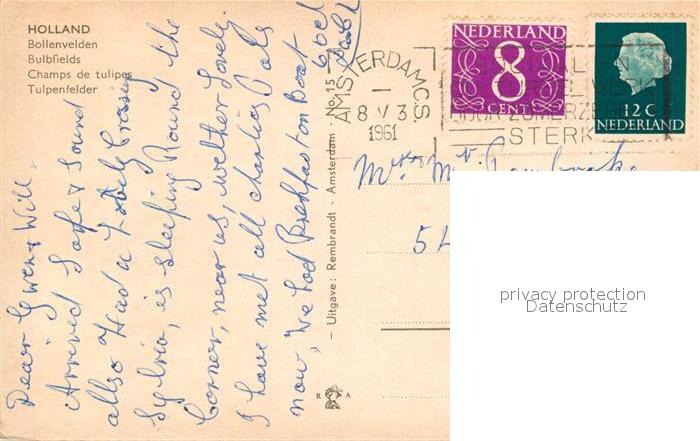 HOLLAND
Bollenvelden
Bulbfields
Champs de tulipes
Tulpenfelder
Dear Gwen & Will.
Arrived Safe & Sound
allso Had a Lovely Crossing
Sylvia, is sleeping Round the
Corner, near us, wether Lovely.
I have met all charlies Pals
now, we had Breakfast on Boat
— Uitgave: Rembrandt - Amsterdam - No. 15 —
R A
AMSTERDAM C.S
8 V 3
1961
STERK
NEDERLAND
8
CENT
12 C
NEDERLAND
Mrs & Mr
54
privacy protection
Datenschutz